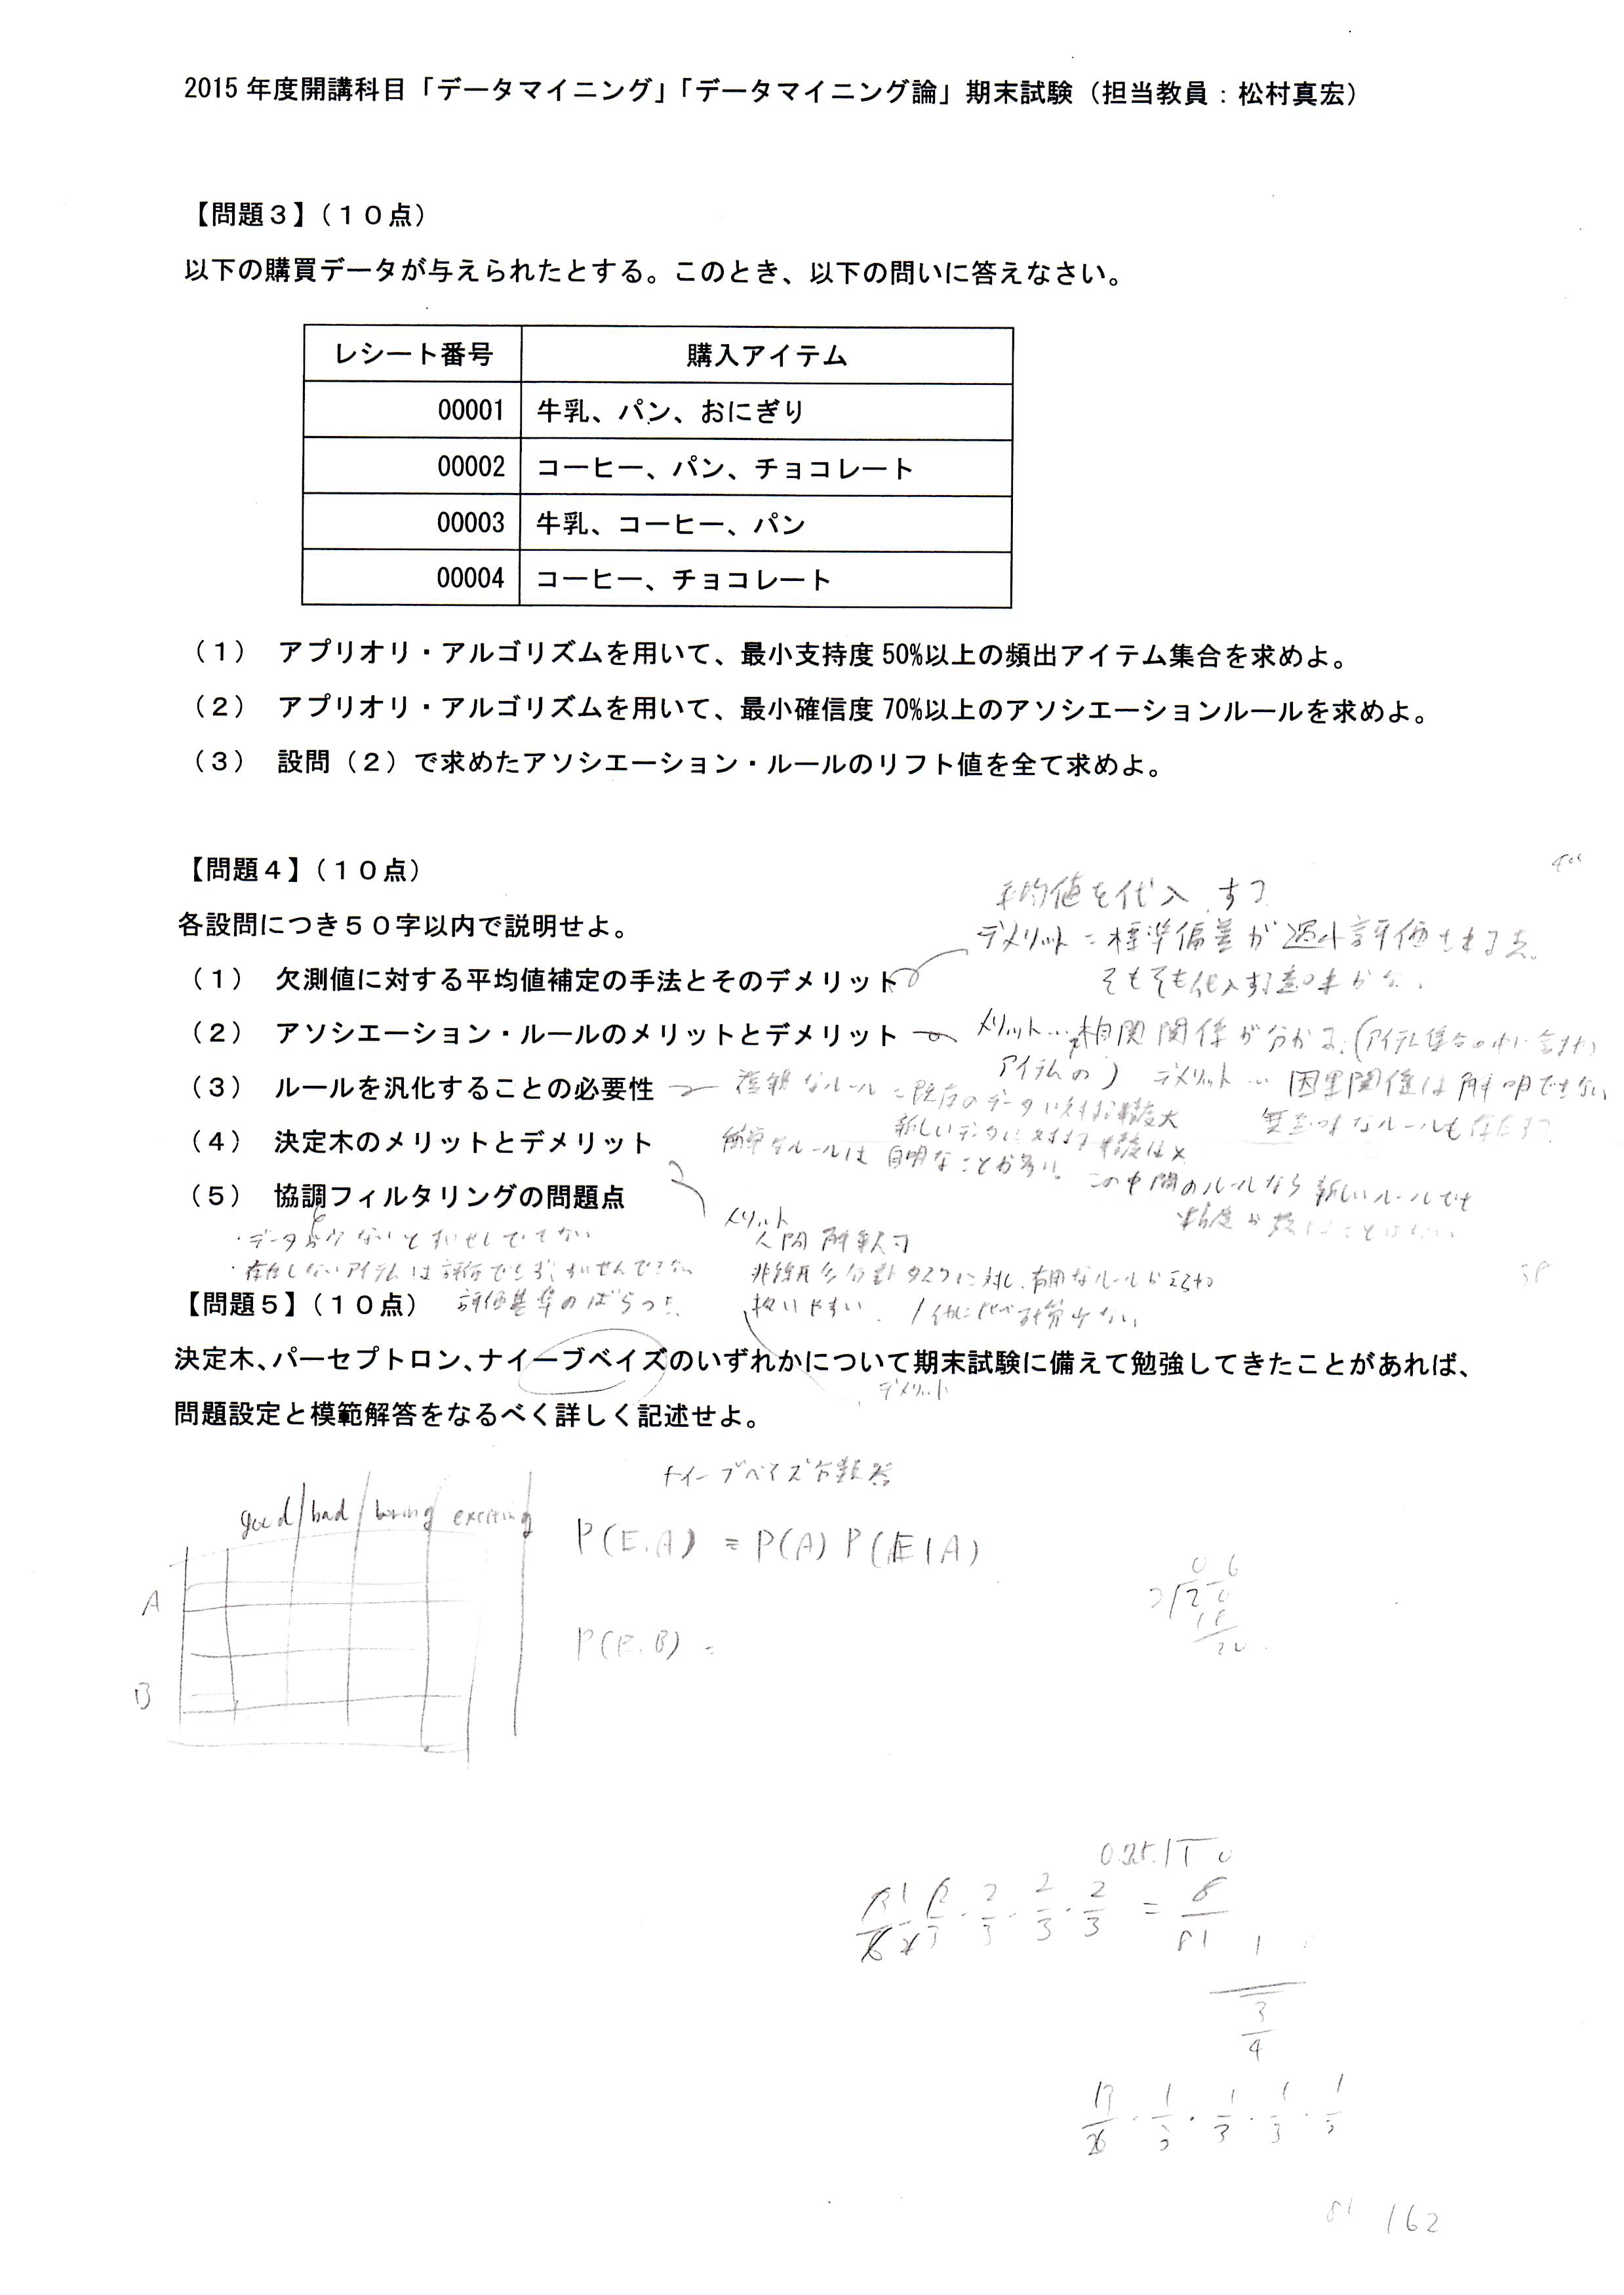 2015年度開講科目「データマイニング」「データマイニング論」期末試験（担当教員：松村真宏）
【問題３】（１０点）
以下の購買データが与えられたとする。このとき、以下の問いに答えなさい。
レシート番号 購入アイテム
00001 牛乳、パン、おにぎり
00002 コーヒー、パン、チョコレート
00003 牛乳、コーヒー、パン
00004 コーヒー、チョコレート
（１） アプリオリ・アルゴリズムを用いて、最小支持度50%以上の頻出アイテム集合を求めよ。
（２） アプリオリ・アルゴリズムを用いて、最小確信度70%以上のアソシエーションルールを求めよ。
（３） 設問（２）で求めたアソシエーション・ルールのリフト値を全て求めよ。
【問題４】（１０点）
平均値を代入する
各設問につき５０字以内で説明せよ。
デメリット＝標準偏差が過小評価される点。
（１） 欠測値に対する平均値補定の手法とそのデメリット
そもそも代入する意味が
（２） アソシエーション・ルールのメリットとデメリット
メリット…相関関係が分かる。(アイテム集合の中に含まれる
アイテムの) デメリット… 因果関係は解明できない
無意味なルールも存在する
（３） ルールを汎化することの必要性
複雑なルール＝既存のデータに対する精度大
新しいデータに対する精度は×
（４） 決定木のメリットとデメリット
簡単なルールは自明なことが多い。この中間のルールなら新しいルールでも
精度が
（５） 協調フィルタリングの問題点
・データが少ないと
・存在しないアイテムは評価できず、
評価基準のばらつき
メリット
人間解釈可
非線形な分類タスクに対し、有用なルールが
扱いやすい
デメリット
【問題５】（１０点）
決定木、パーセプトロン、ナイーブベイズのいずれかについて期末試験に備えて勉強してきたことがあれば、
問題設定と模範解答をなるべく詳しく記述せよ。
ナイーブベイズ分類器
good bad boring exciting
P(E,A) = P(A) P(E|A)
A
P(E,B) =
B
2/3 · 2/3 · 2/3 = 8/81
3/4
1/3 · 1/3 · 1/3 · 1/3
81 162